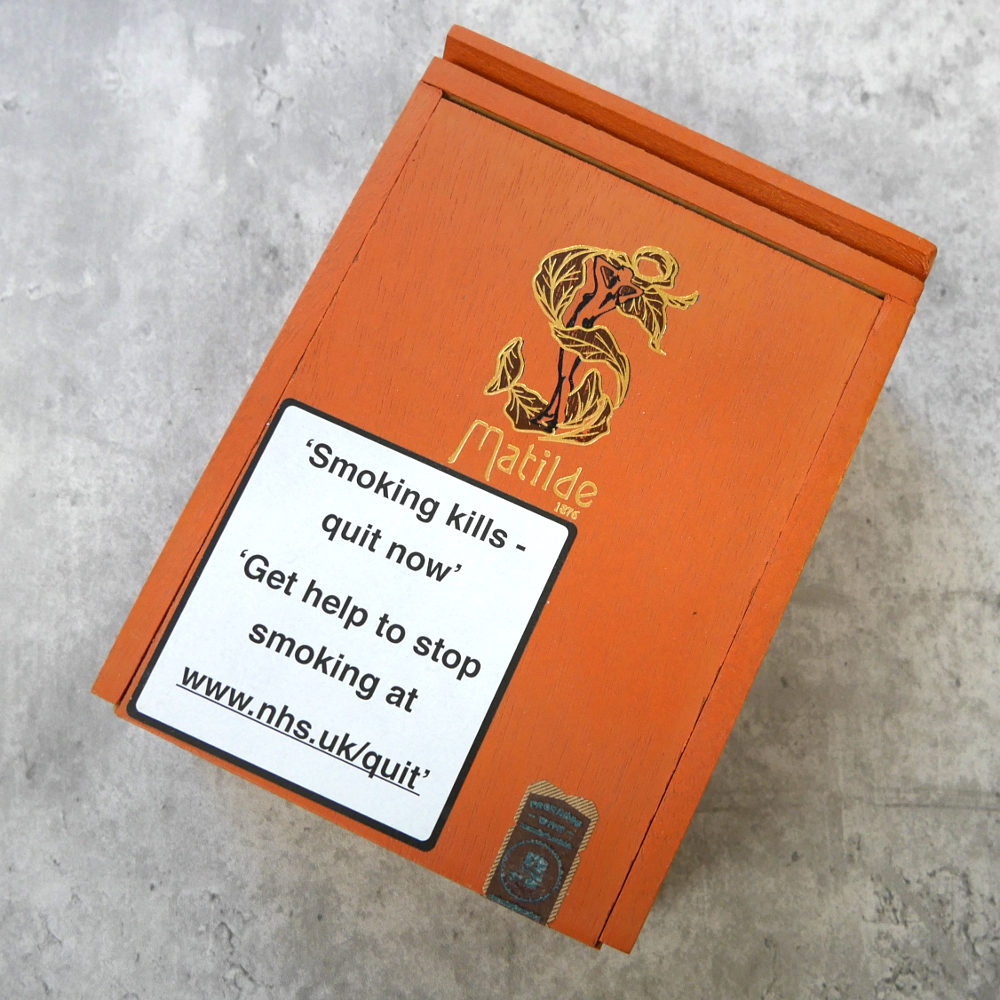 Matilde
1876
‘Smoking kills -
quit now’
‘Get help to stop
smoking at
www.nhs.uk/quit’